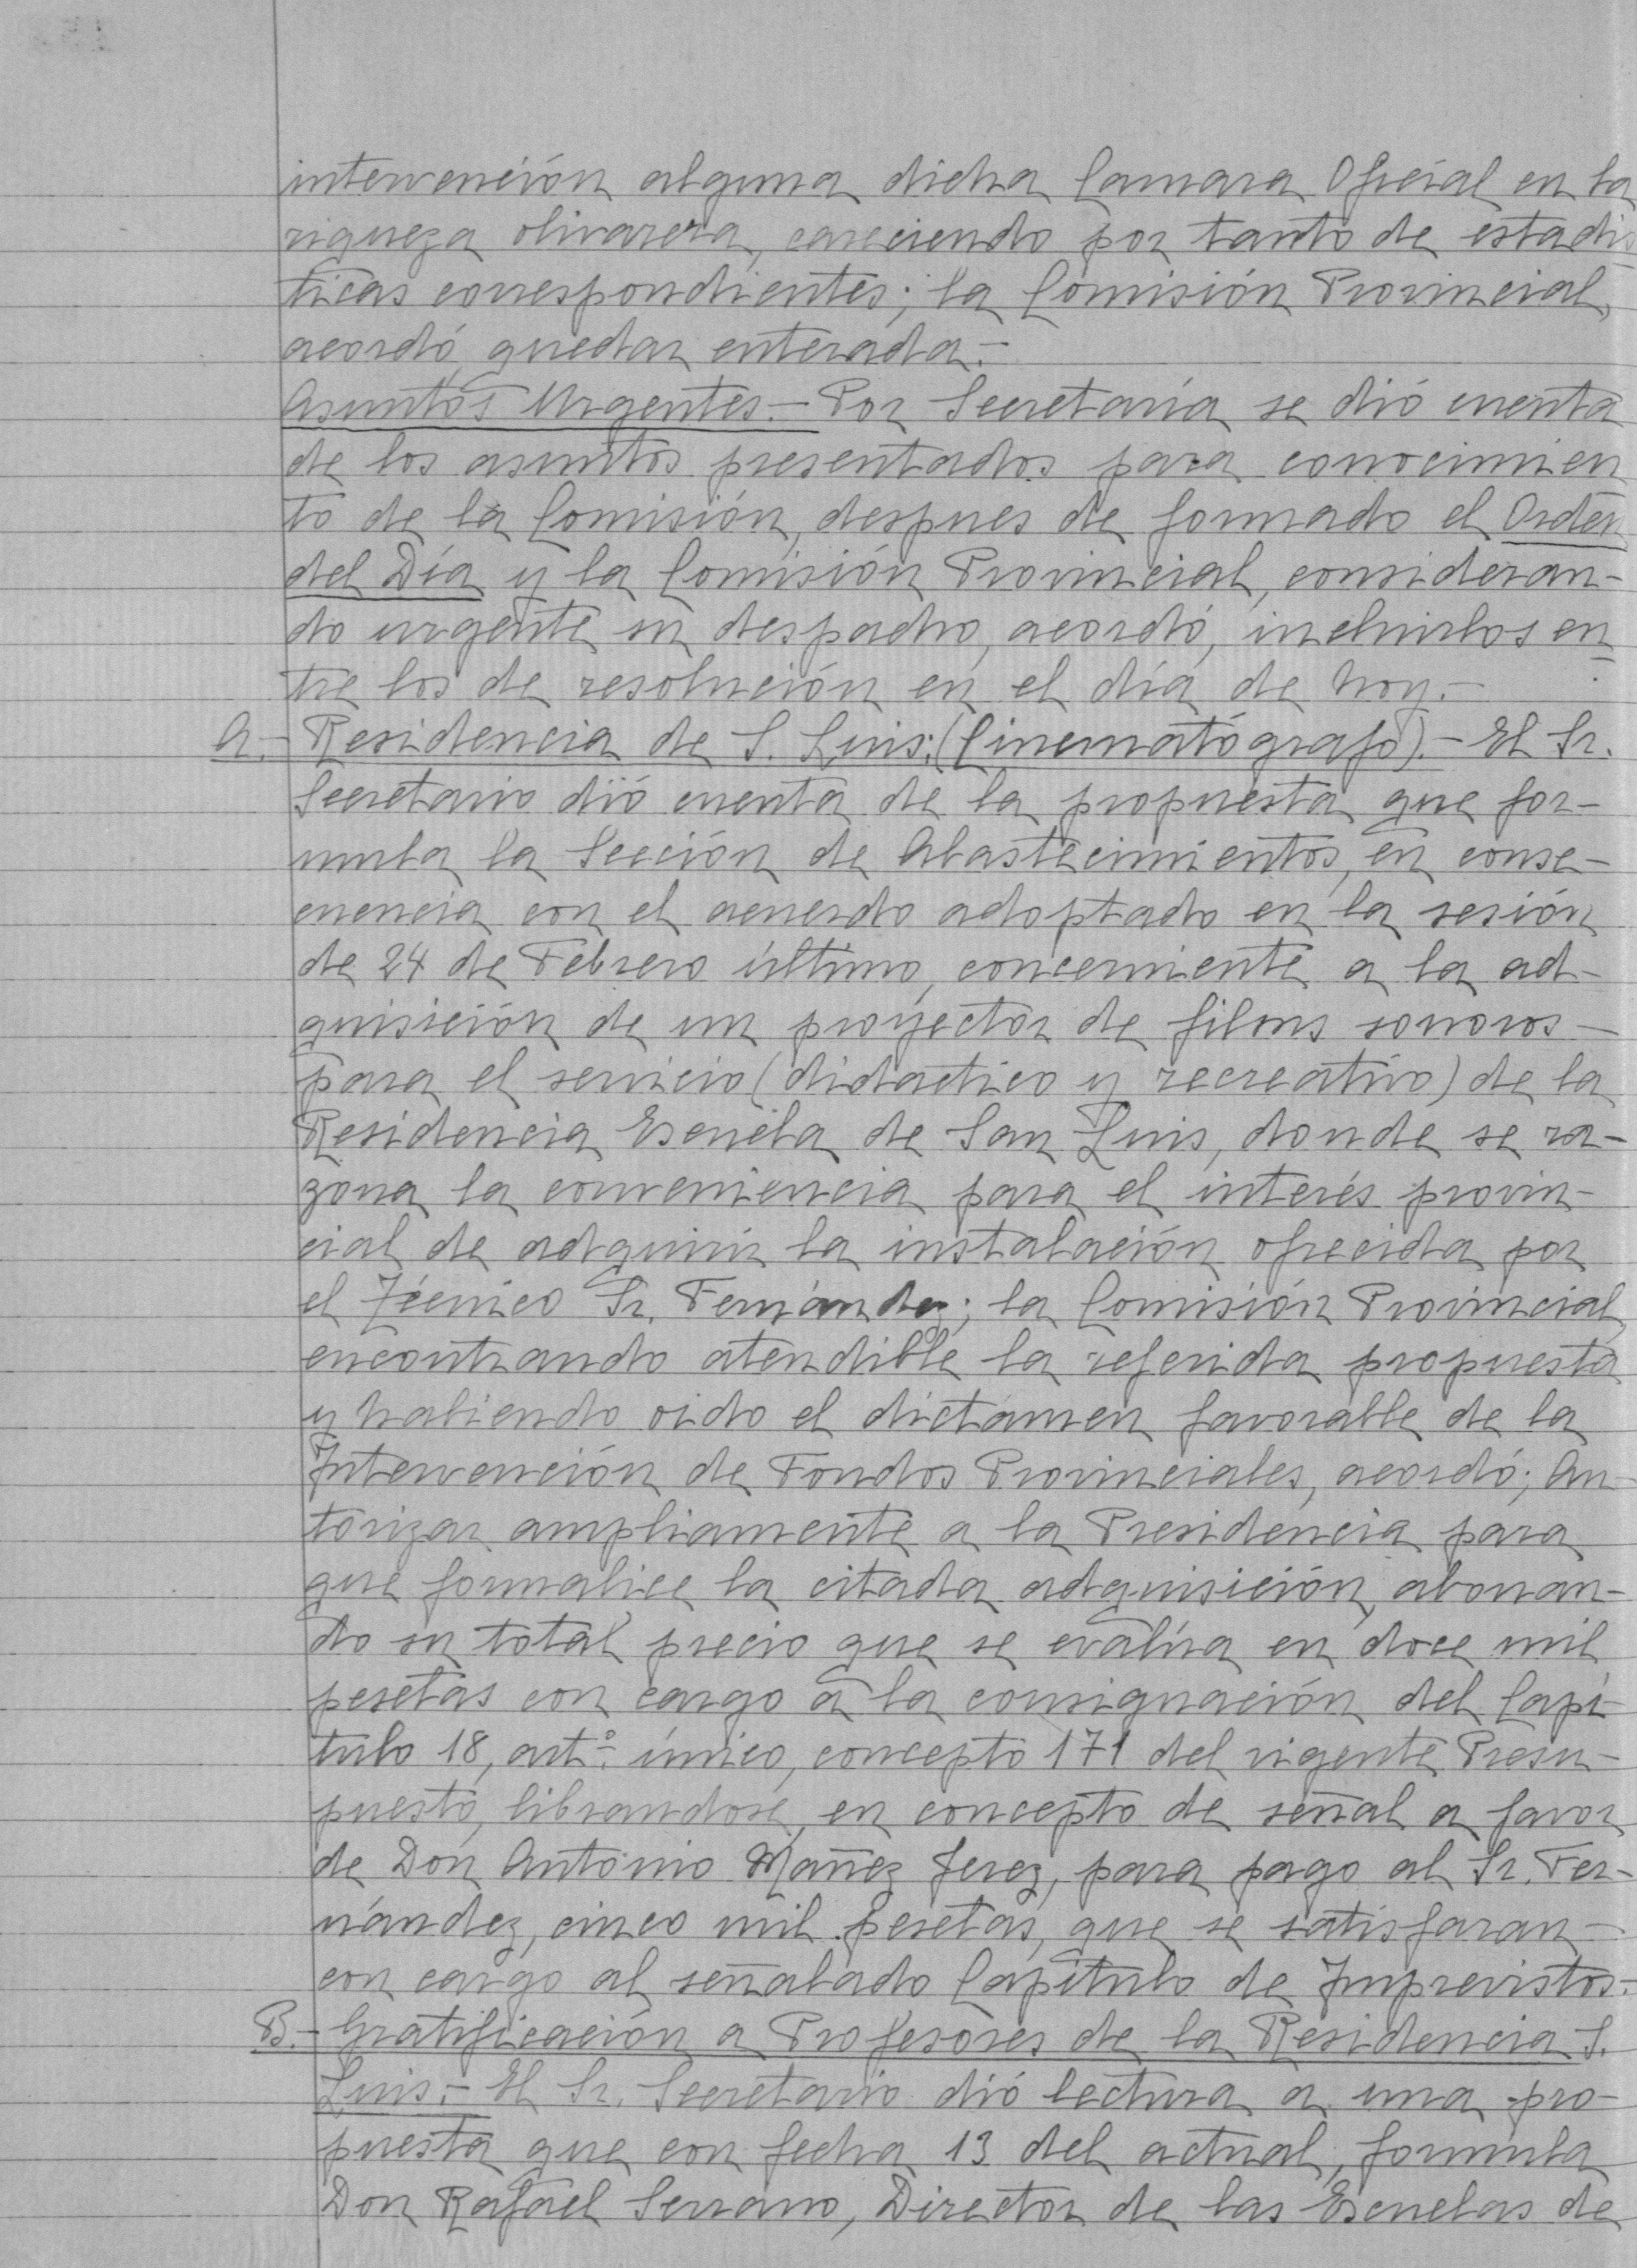 intervención alguna dicha Camara Oficial en la
riqueza olivarera, careciendo por tanto de estadis
ticas correspondientes; la Comisión Provincial,
acordó quedar enterada.-
Asuntos Urgentes.- Por Secretaría se dió cuenta
de los asuntos presentados para conocimien
to de la Comisión, despues de formado el Orden
del Día y la Comisión Provincial, consideran-
do urgente su despacho, acordó, incluirlos en
tre los de resolución en el día de hoy.-
A.- Residencia de S. Luis: (Cinematógrafo).- El Sr.
Secretario dió cuenta de la propuesta que for-
mula la Sección de Abastecimientos, en conse-
cuencia con el acuerdo adoptado en la sesión
de 24 de Febrero último, concerniente a la ad-
quisición de un proyector de films sonoros-
para el servicio (didactico y recreativo) de la
Residencia Escuela de San Luis, donde se ra-
zona la conveniencia para el interés provin-
cial de adquirir la instalación ofrecida por
el Técnico Sr. Fernández; la Comisión Provincial,
encontrando atendible la referida propuesta
y habiendo oido el dictámen favorable de la
Intervención de Fondos Provinciales, acordó; Au-
torizar ampliamente a la Presidencia para
que formalice la citada adquisición, abonan-
do su total precio que se evalúa en doce mil
pesetas con cargo a la consignación del Capí-
tulo 18, artº. único, concepto 171 del vigente Presu-
puesto, librandose, en concepto de señal a favor
de Don Antonio Mañez Jerez, para pago al Sr. Fer-
nández, cinco mil pesetas, que se satisfaran-
con cargo al señalado Capítulo de Imprevistos.-
B.- Gratificación a Profesores de la Residencia S.
Luis.- El Sr. Secretario dió lectura a una pro-
puesta que con fecha 13 del actual, formula
Don Rafael Serrano, Director de las Escuelas de